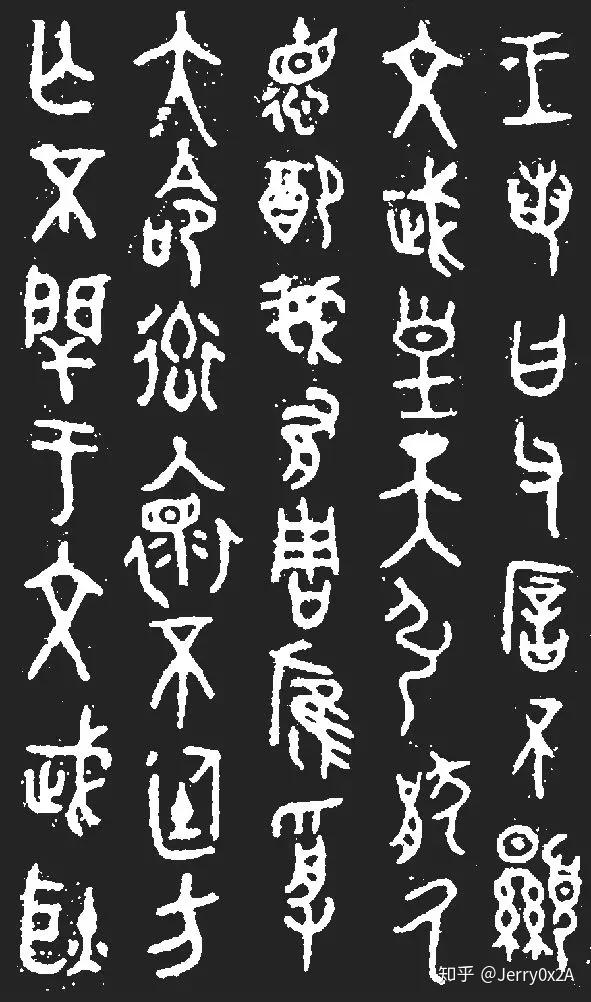 王若曰父厝不顯
文武皇天引猒氒
德配我有周雁受
大命率褱不廷方
亡不閈于文武耿
知乎 @Jerry0x2A